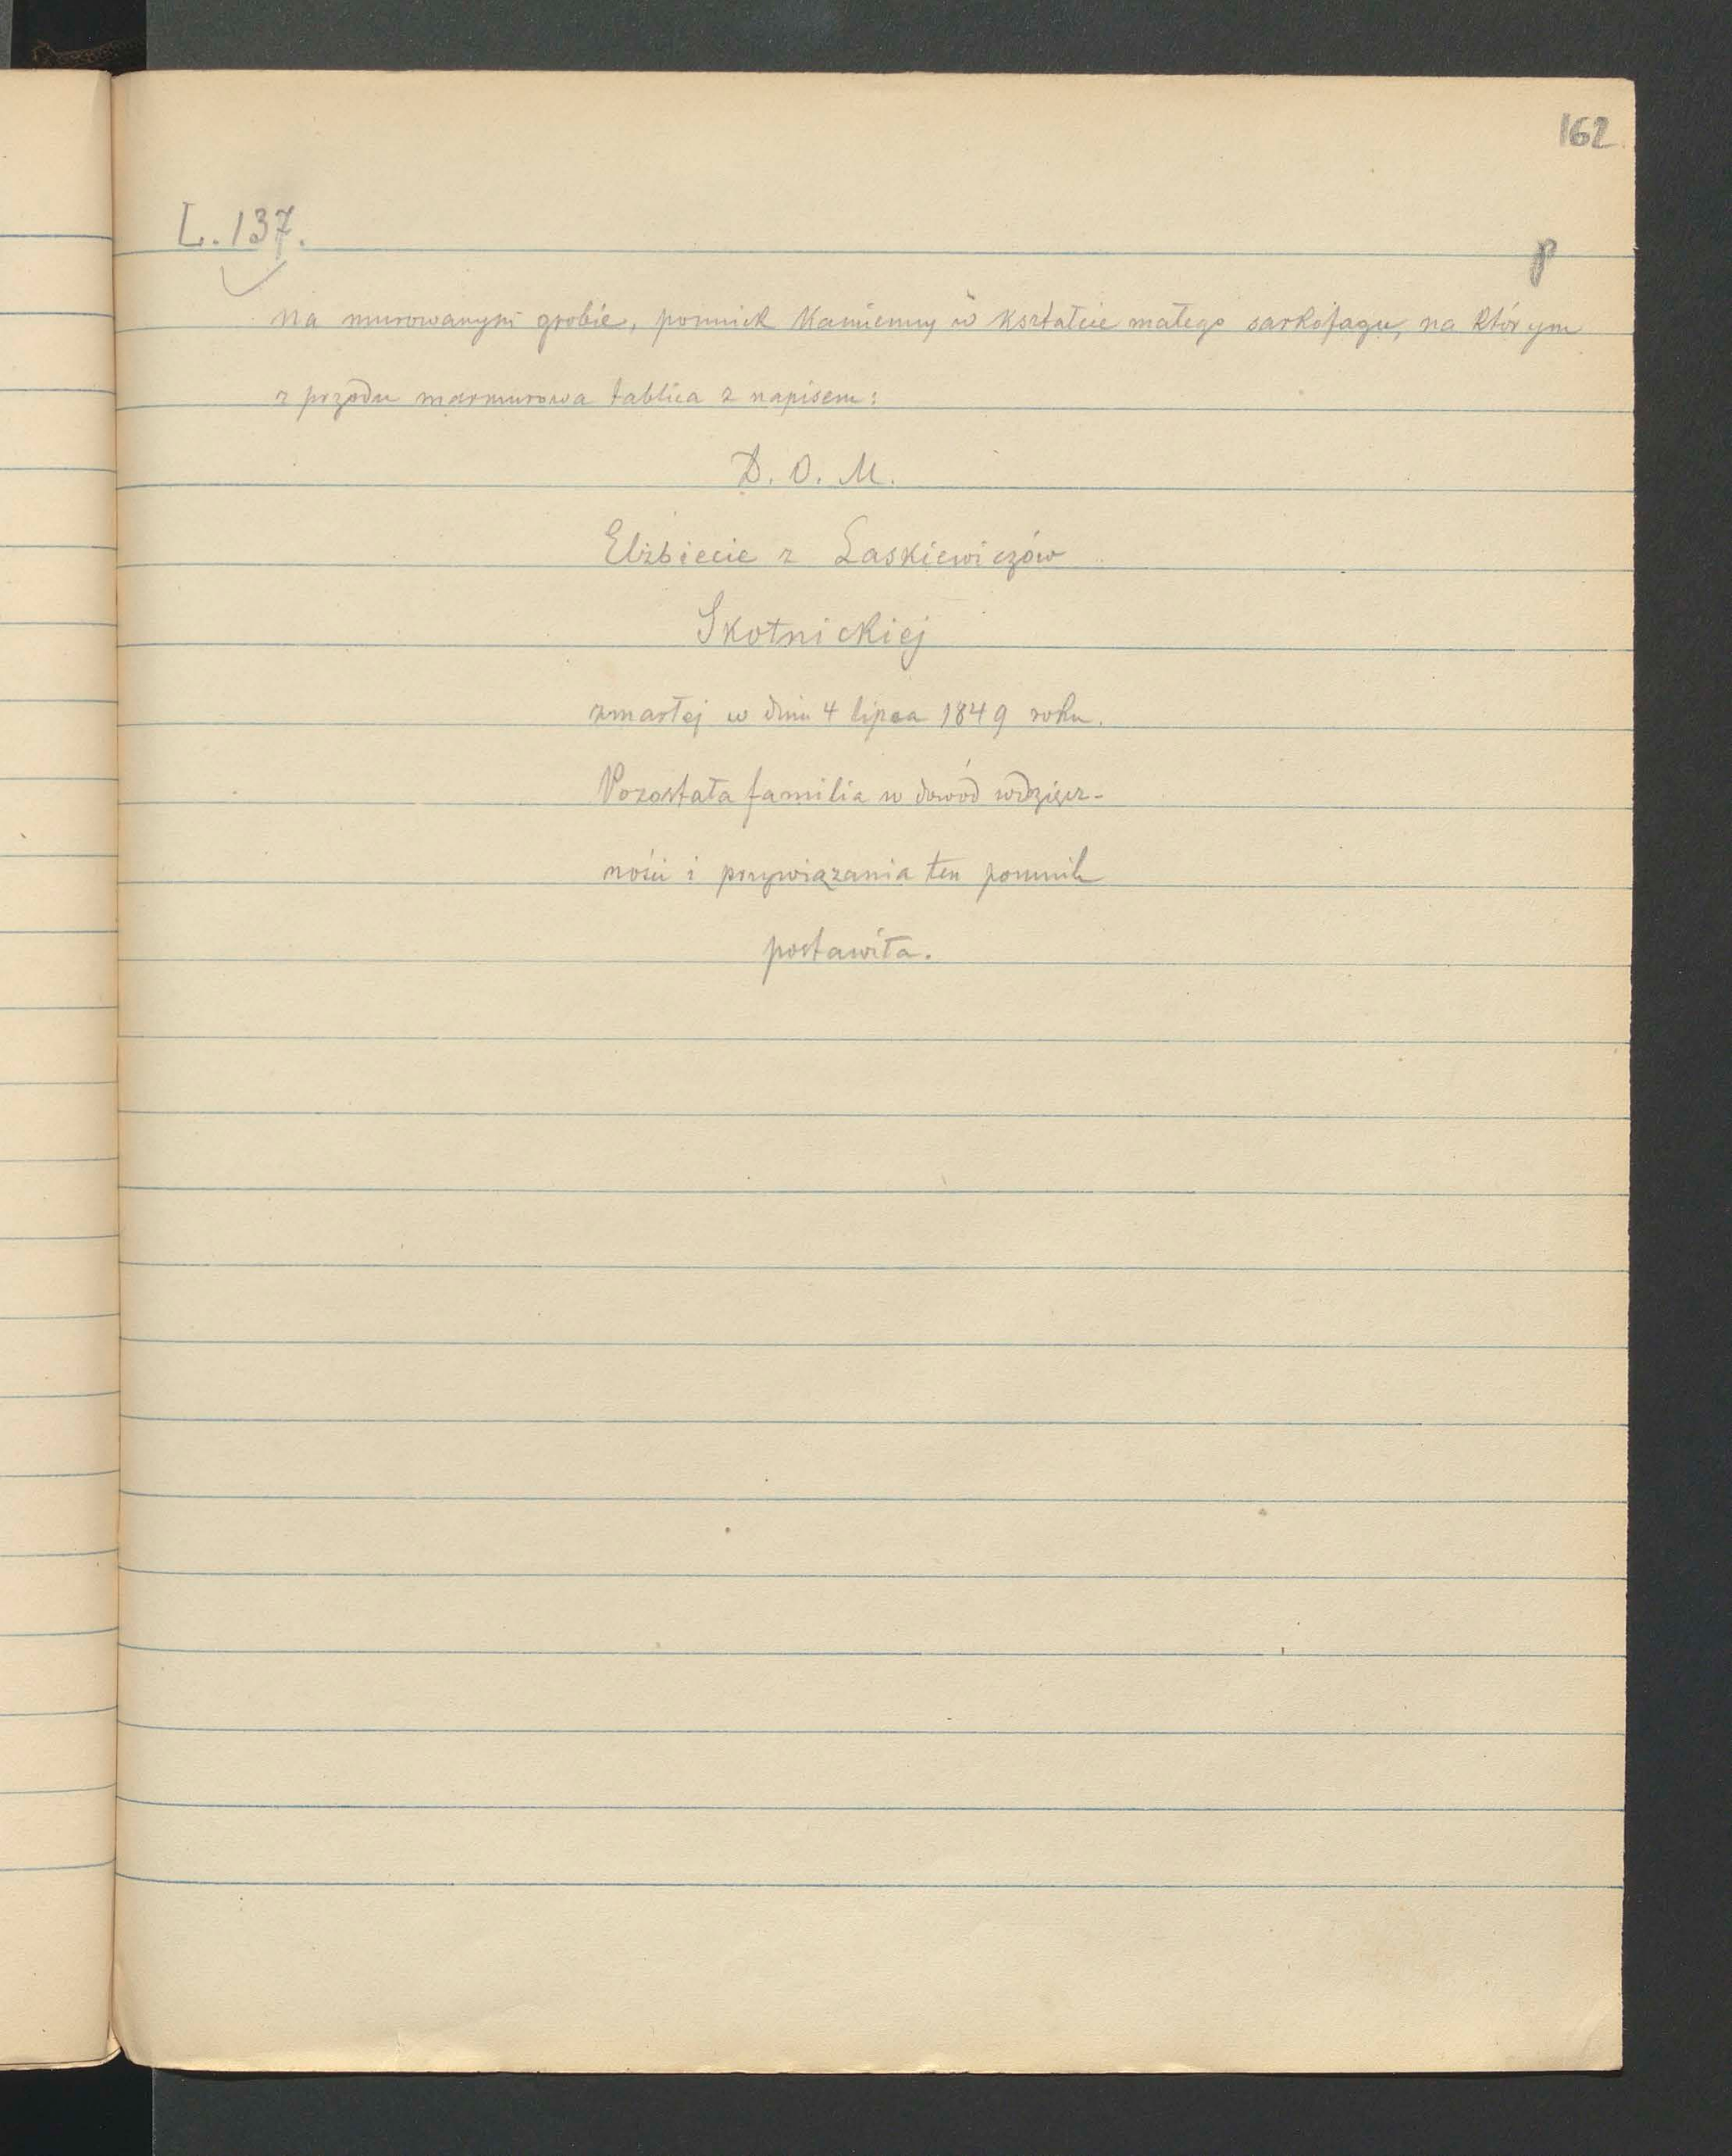 162
L. 137.
p
na murowanym grobie, pomnik kamienny w kształcie małego sarkofagu, na którym
z przodu marmurowa tablica z napisem:
D. O. M.
Elżbiecie z Laskiewiczów
Skotnickiej
zmarłej w dniu 4 lipca 1849 roku.
Pozostała familia w dowód wdzięcz-
ności i przywiązania ten pomnik
postawiła.